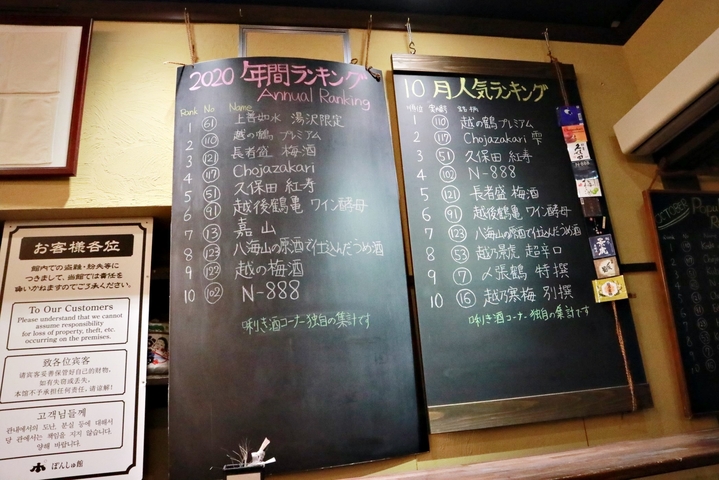 お客様各位
館内での盗難・紛失等に
つきまして、当館では責任を
負いかねますのでご了承ください。
To Our Customers
Please understand that we cannot
assume responsibility
for loss of property, theft, etc.
occurring on the premises.
致各位宾客
请宾客妥善保管好自己的财物,
如有失窃或丢失,
本馆不予承担任何责任,请谅解!
고객님들께
관내에서의 도난, 분실 등에 대해서
당 관에서는 책임을 지지 않습니다.
양해 바랍니다.
ぽんしゅ館
2020 年間ランキング
Annual Ranking
Rank No Name
1 61 上善如水 湯沢限定
2 110 越の鶴 プレミアム
3 121 長者盛 梅酒
4 117 Chojazakari
5 51 久保田 紅寿
6 91 越後鶴亀 ワイン酵母
7 13 嘉山
8 123 八海山の原酒で仕込んだうめ酒
9 122 越の梅酒
10 102 N-888
唎き酒コーナー独自の集計です
10月人気ランキング
順位 番号 銘柄
1 110 越の鶴 プレミアム
2 117 Chojazakari 雫
3 51 久保田 紅寿
4 102 N-888
5 121 長者盛 梅酒
6 91 越後鶴亀 ワイン酵母
7 123 八海山の原酒で仕込んだうめ酒
8 53 越乃景虎 超辛口
9 7 〆張鶴 特撰
10 16 越乃寒梅 別撰
唎き酒コーナー独自の集計です